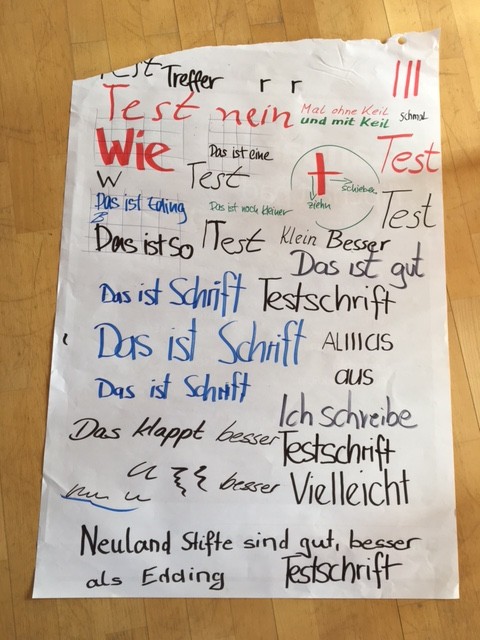 Test Treffer r r
Test nein
Mal ohne Keil
und mit Keil
schmal
Wie
Das ist eine
Test
W
Test
schieben
ziehn
Das ist Edding
Das ist noch kleiner
Test
Das ist so
Test
Klein Besser
Das ist gut
Das ist Schrift
Testschrift
Das ist Schrift
aus
Das ist Schrift
Ich schreibe
Das klappt besser
Testschrift
besser
Vielleicht
Neuland Stifte sind gut, besser
als Edding
Testschrift